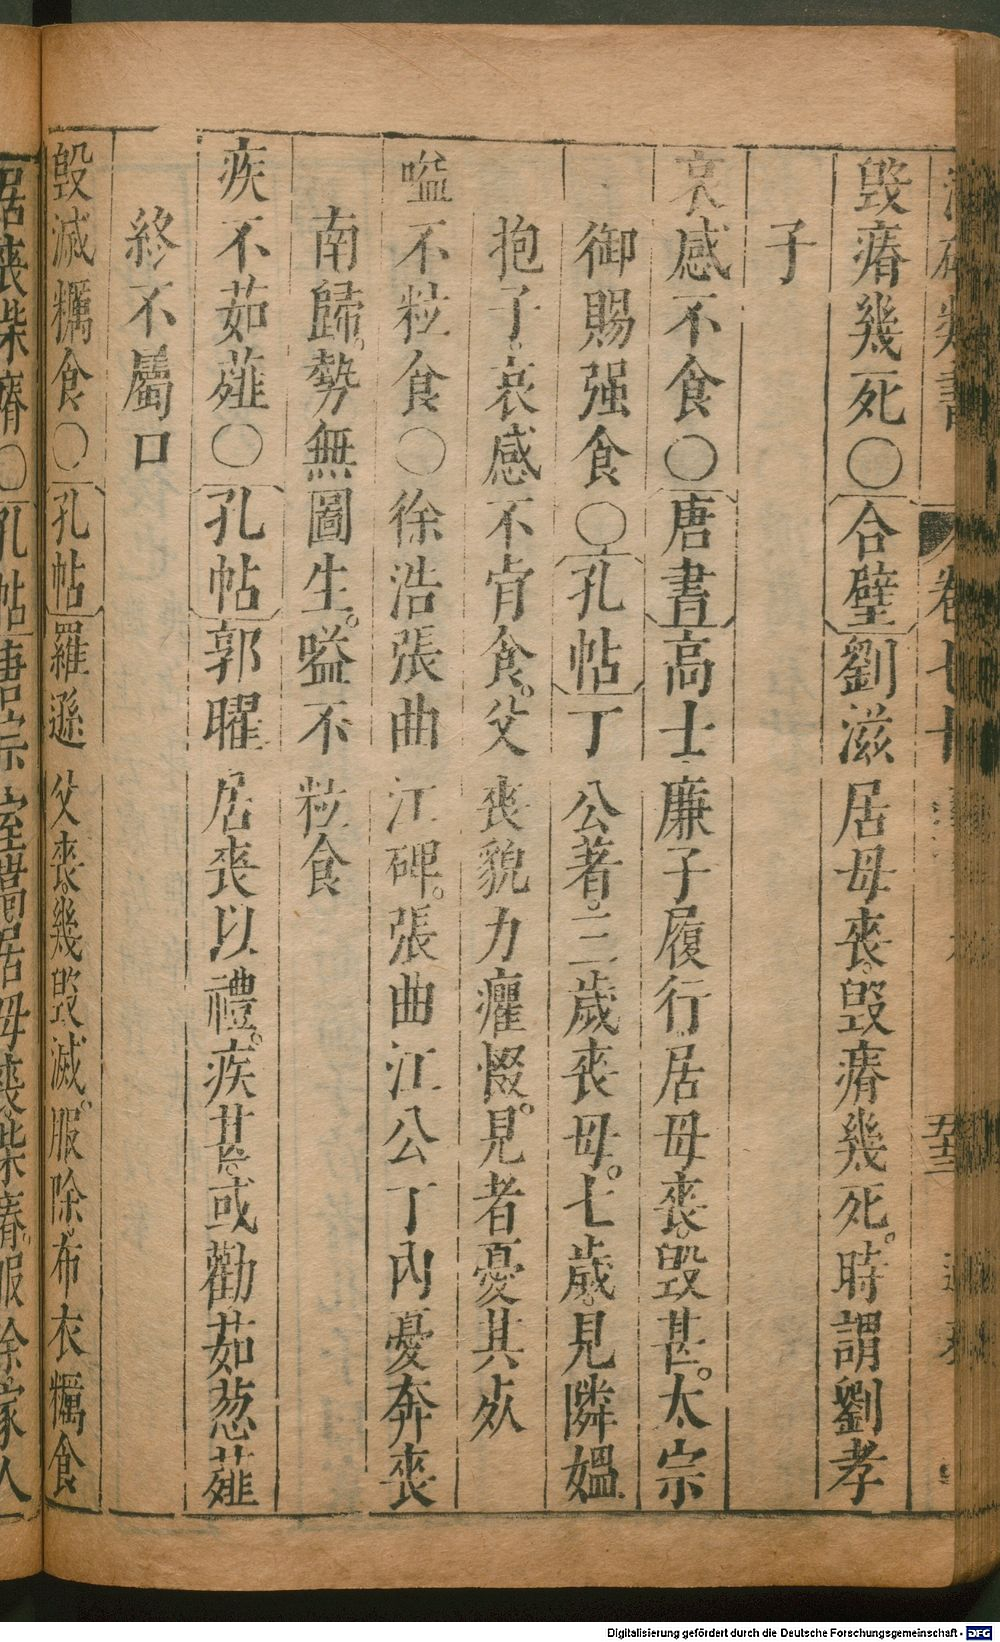 卷七十
毀瘠幾死〇合璧劉滋居母喪。毀瘠幾死。時謂劉孝
子
哀感不食〇唐書高士廉子履行居母喪。毀甚。太宗
御賜强食〇孔帖丁公著。三歲喪母。七歲。見隣媼
抱子。哀感不肯食。父喪貌力癯惙。見者憂其㱔
嗌不粒食〇徐浩張曲江碑。張曲江公丁內憂奔喪
南歸。勢無圖生。嗌不粒食
疾不茹薤〇孔帖郭曜居喪以禮。疾甚。或勸茹葱薤
終不屬口
毀滅糲食〇孔帖羅遜父喪。幾毀滅。服除。布衣糲食
居喪柴瘠〇孔帖唐宗室暠居母喪柴瘠。服除。家人
Digitalisierung gefördert durch die Deutsche Forschungsgemeinschaft - DFG